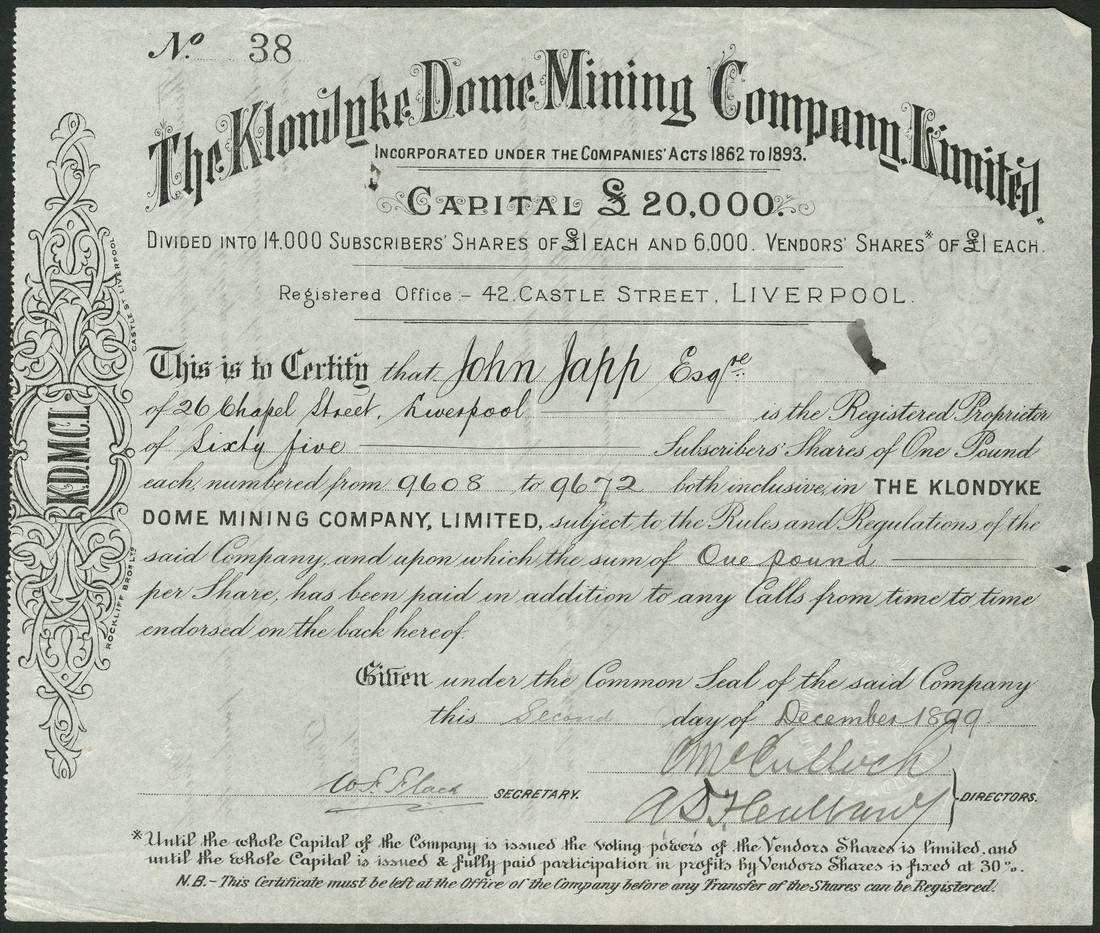 No. 38
The Klondyke Dome Mining Company, Limited.
INCORPORATED UNDER THE COMPANIES' ACTS 1862 TO 1893.
CAPITAL £20,000.
DIVIDED INTO 14,000 SUBSCRIBERS' SHARES OF £1 EACH AND 6,000. VENDORS' SHARES* OF £1 EACH.
Registered Office - 42, CASTLE STREET, LIVERPOOL.
This is to Certify that John Japp Esqre.
of 26 Chapel Street, Liverpool is the Registered Proprietor
of Sixty five Subscribers' Shares of One Pound
each, numbered from 9608 to 9672 both inclusive, in THE KLONDYKE
DOME MINING COMPANY, LIMITED, subject to the Rules and Regulations of the
said Company, and upon which the sum of One pound
per Share, has been paid in addition to any Calls from time to time
endorsed on the back hereof.
Given under the Common Seal of the said Company
this Second day of December 1899.
C McCulloch
W F Flack SECRETARY.
DIRECTORS.
*Until the whole Capital of the Company is issued the voting powers of the Vendors Shares is limited, and
until the whole Capital is issued & fully paid participation in profits by Vendors Shares is fixed at 30%.
N.B. - This Certificate must be left at the Office of the Company before any Transfer of the Shares can be Registered.
K.D.M.C.L.
ROCKLIFF BROS LTD
CASTLE ST LIVERPOOL